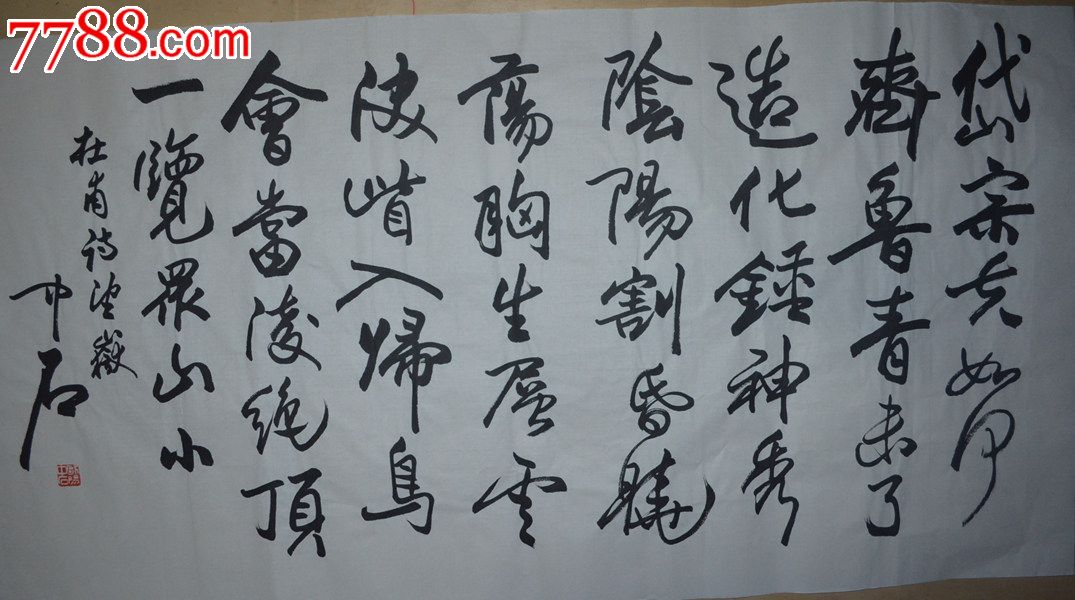 7788.com
岱宗夫如何
齊魯青未了
造化鍾神秀
陰陽割昏曉
蕩胸生層雲
決眥入歸鳥
會當凌絕頂
一覽眾山小
杜甫詩望嶽
中石